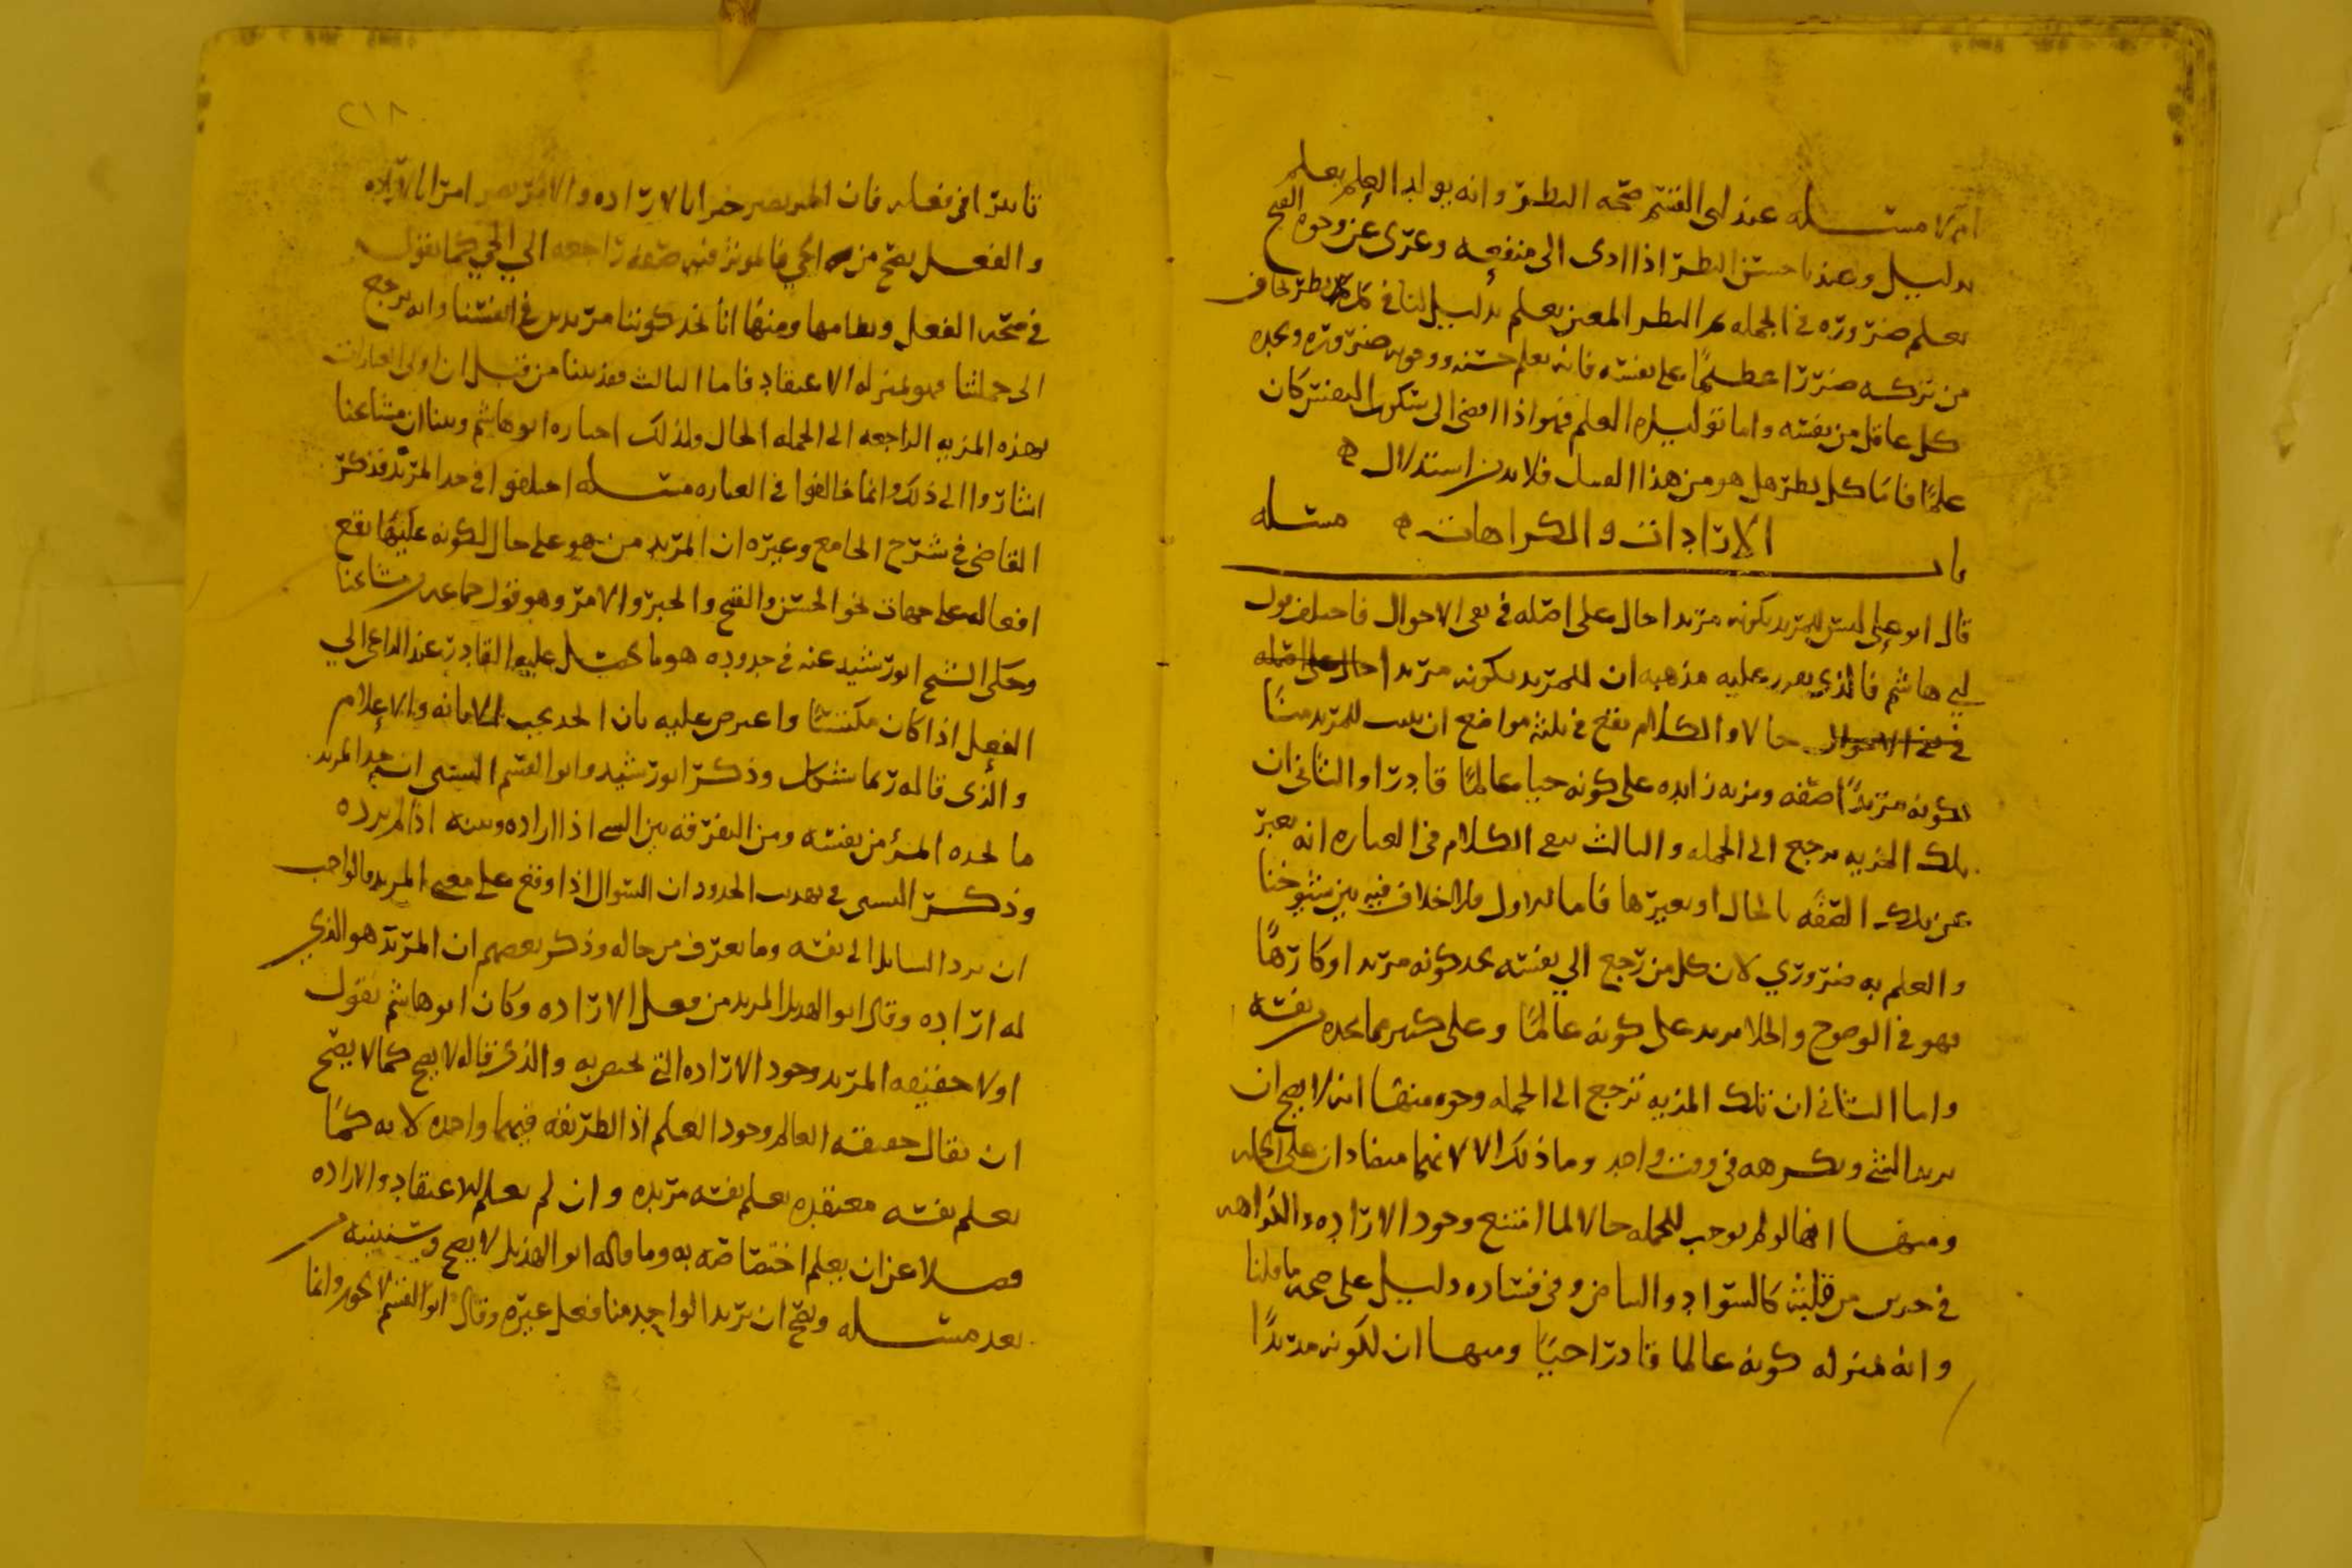 ام لا مسئله عند ابى القسم صحه النظر وانه يولد العلم يعلم
بدليل وعندنا حسن النظر اذا ادى الى منفعه وعرى عن وجوه القبح
يعلم ضروره في الجمله والنظر المعين يعلم بدليل لنا في ان كل نظر يخاف
من تركه ضررا عظيما على نفسه فانه يعلم حسنه ووجوبه ضروره ويجده
كل عاقل من نفسه واما توليده العلم فهو اذا افضى الى سكون النفس كان
علما فاما كل نظر هل هو من هذا القبيل فلا بد من استدلال ه
باب الارادات والكراهات ه مسئله
قال ابو على ليس للمريد بكونه مريدا حال على اصله في نفى الاحوال فاختلف قول
ابي هاشم فالذي يقرر عليه مذهبه ان للمريد بكونه مريدا حال على اصله
في نفى الاحوال حالا والكلام يقع في ثلثه مواضع ان يثبت للمريد منا
لكونه مريدا صفه ومزيه زايده على كونه حيا عالما قادرا والثانى ان
تلك المزيه يرجع الى الجمله والثالث يبقى الكلام في العباره انه يعبر
عن تلك الصفه بالحال او بغيرها فاما الاول فلا خلاف فيه بين شيوخنا
والعلم به ضروري لان كل من رجع الي نفسه يجد كونه مريدا او كارها
فهو في الوضوح والجلا يزيد على كونه عالما وعلى كثير مما يجده من نفسه
واما الثانى ان تلك المزيه ترجع الى الجمله وجوه منها انه لا يصح ان
يريد الشى ويكرهه في وقت واحد وما ذلك الا لانهما متضادان على الجمله
ومنها انها لو لم يوجب للجمله حالا لما امتنع وجود الاراده والكراهه
في جزين من قلبه كالسواد والبياض وفي فساده دليل على صحه ما قلنا
وانه بمنزله كونه عالما قادرا حيا ومنها ان لكونه مريدا
٢١٨
تاثيرا في فعله فان الخبر يصير خبرا بالاراده والامر يصير امرا بالاراده
والفعل يصح من الحي فالموثر فيه صفه راجعه الي الحي كما نقول
في صحه الفعل ونظامها ومنها انا نجد كوننا مريدين في انفسنا وانه يرجع
الى جملتنا فهو بمنزله الاعتقاد فاما الثالث فقد بينا من قبل ان اولى العبارات
بهذه المزيه الراجعه الى الجمله الحال ولذلك اختاره ابو هاشم وبينا ان مشايخنا
اشاروا الى ذلك وانما خالفوا في العباره مسئله اختلفوا في حد المريد فذكر
القاضى في شرح الجامع وغيره ان المريد من هو على حال لكونه عليها يقع
افعاله على جهات نحو الحسن والقبح والخبر والامر وهو قول جماعه من مشايخنا
وحكى الشيخ ابو رشيد عنه في حدوده هو ما يحصل عليه القادر عند الداعى الي
الفعل اذا كان مكتسبا واعترض عليه بان الحد يجب للابانه والاعلام
والذى قاله ربما يشكل وذكر ابو رشيد وابو القسم البستى ان حد المريد
ما يجده المرء من نفسه ومن التفرقه بين الشى اذا اراده وبينه اذا لم يرده
وذكر البستى في تهذيب الحدود ان السوال اذا وقع على معنى المريد فالواجب
ان يرد السايل الى نفسه وما يعرف من حاله وذكر بعضهم ان المريد هو الذي
له اراده وقال ابو الهذيل المريد من فعل الاراده وكان ابو هاشم يقول
اولا حقيقه المريد وجود الاراده التى تختص به والذى قاله لا يصح كما لا يصح
ان يقال حقيقه العالم وجود العلم اذ الطريقه فيهما واحده لانه كما
يعلم نفسه معتقده يعلم نفسه مريده وان لم يعلم الاعتقاد والاراده
فضلا عن ان يعلم اختصاصه به وما قاله ابو الهذيل لا يصح وسنبينه من
بعد مسئله ويصح ان يريد الواحد منا فعل غيره وقال ابو القسم لا يجوز وانما